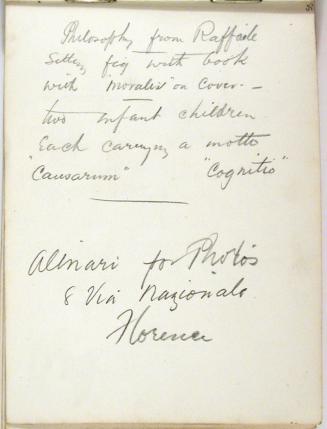 Philosophy from Raffaele
Sitting fig with book
with "Moralis" on Cover -
two infant children
Each carrying a motto
"Causarum" "Cognitio"
Alinari for Photos
8 Via Nazionale
Florence